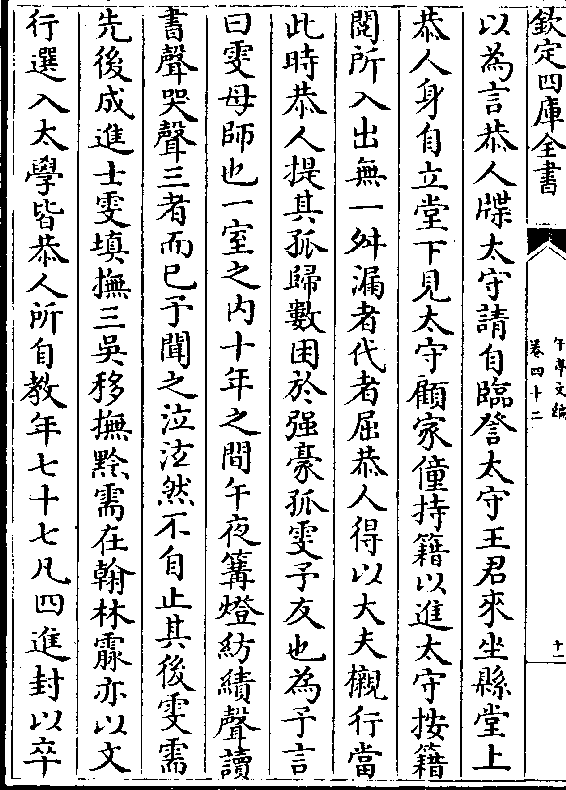 欽定四庫全書
午亭文編
卷四十二
十二
以為言恭人牒太守請自臨詧太守王君來坐縣堂上
恭人身自立堂下見太守顧家僮持籍以進太守按籍
閱所入出無一舛漏者代者屈恭人得以大夫櫬行當
此時恭人提其孤歸數困於强豪孤雯予友也為予言
曰雯母師也一室之内十年之間午夜篝燈紡績聲讀
書聲哭聲三者而已予聞之泣泫然不自止其後雯需
先後成進士雯填撫三吳移撫黔需在翰林霢亦以文
行選入太學皆恭人所自教年七十七凡四進封以卒